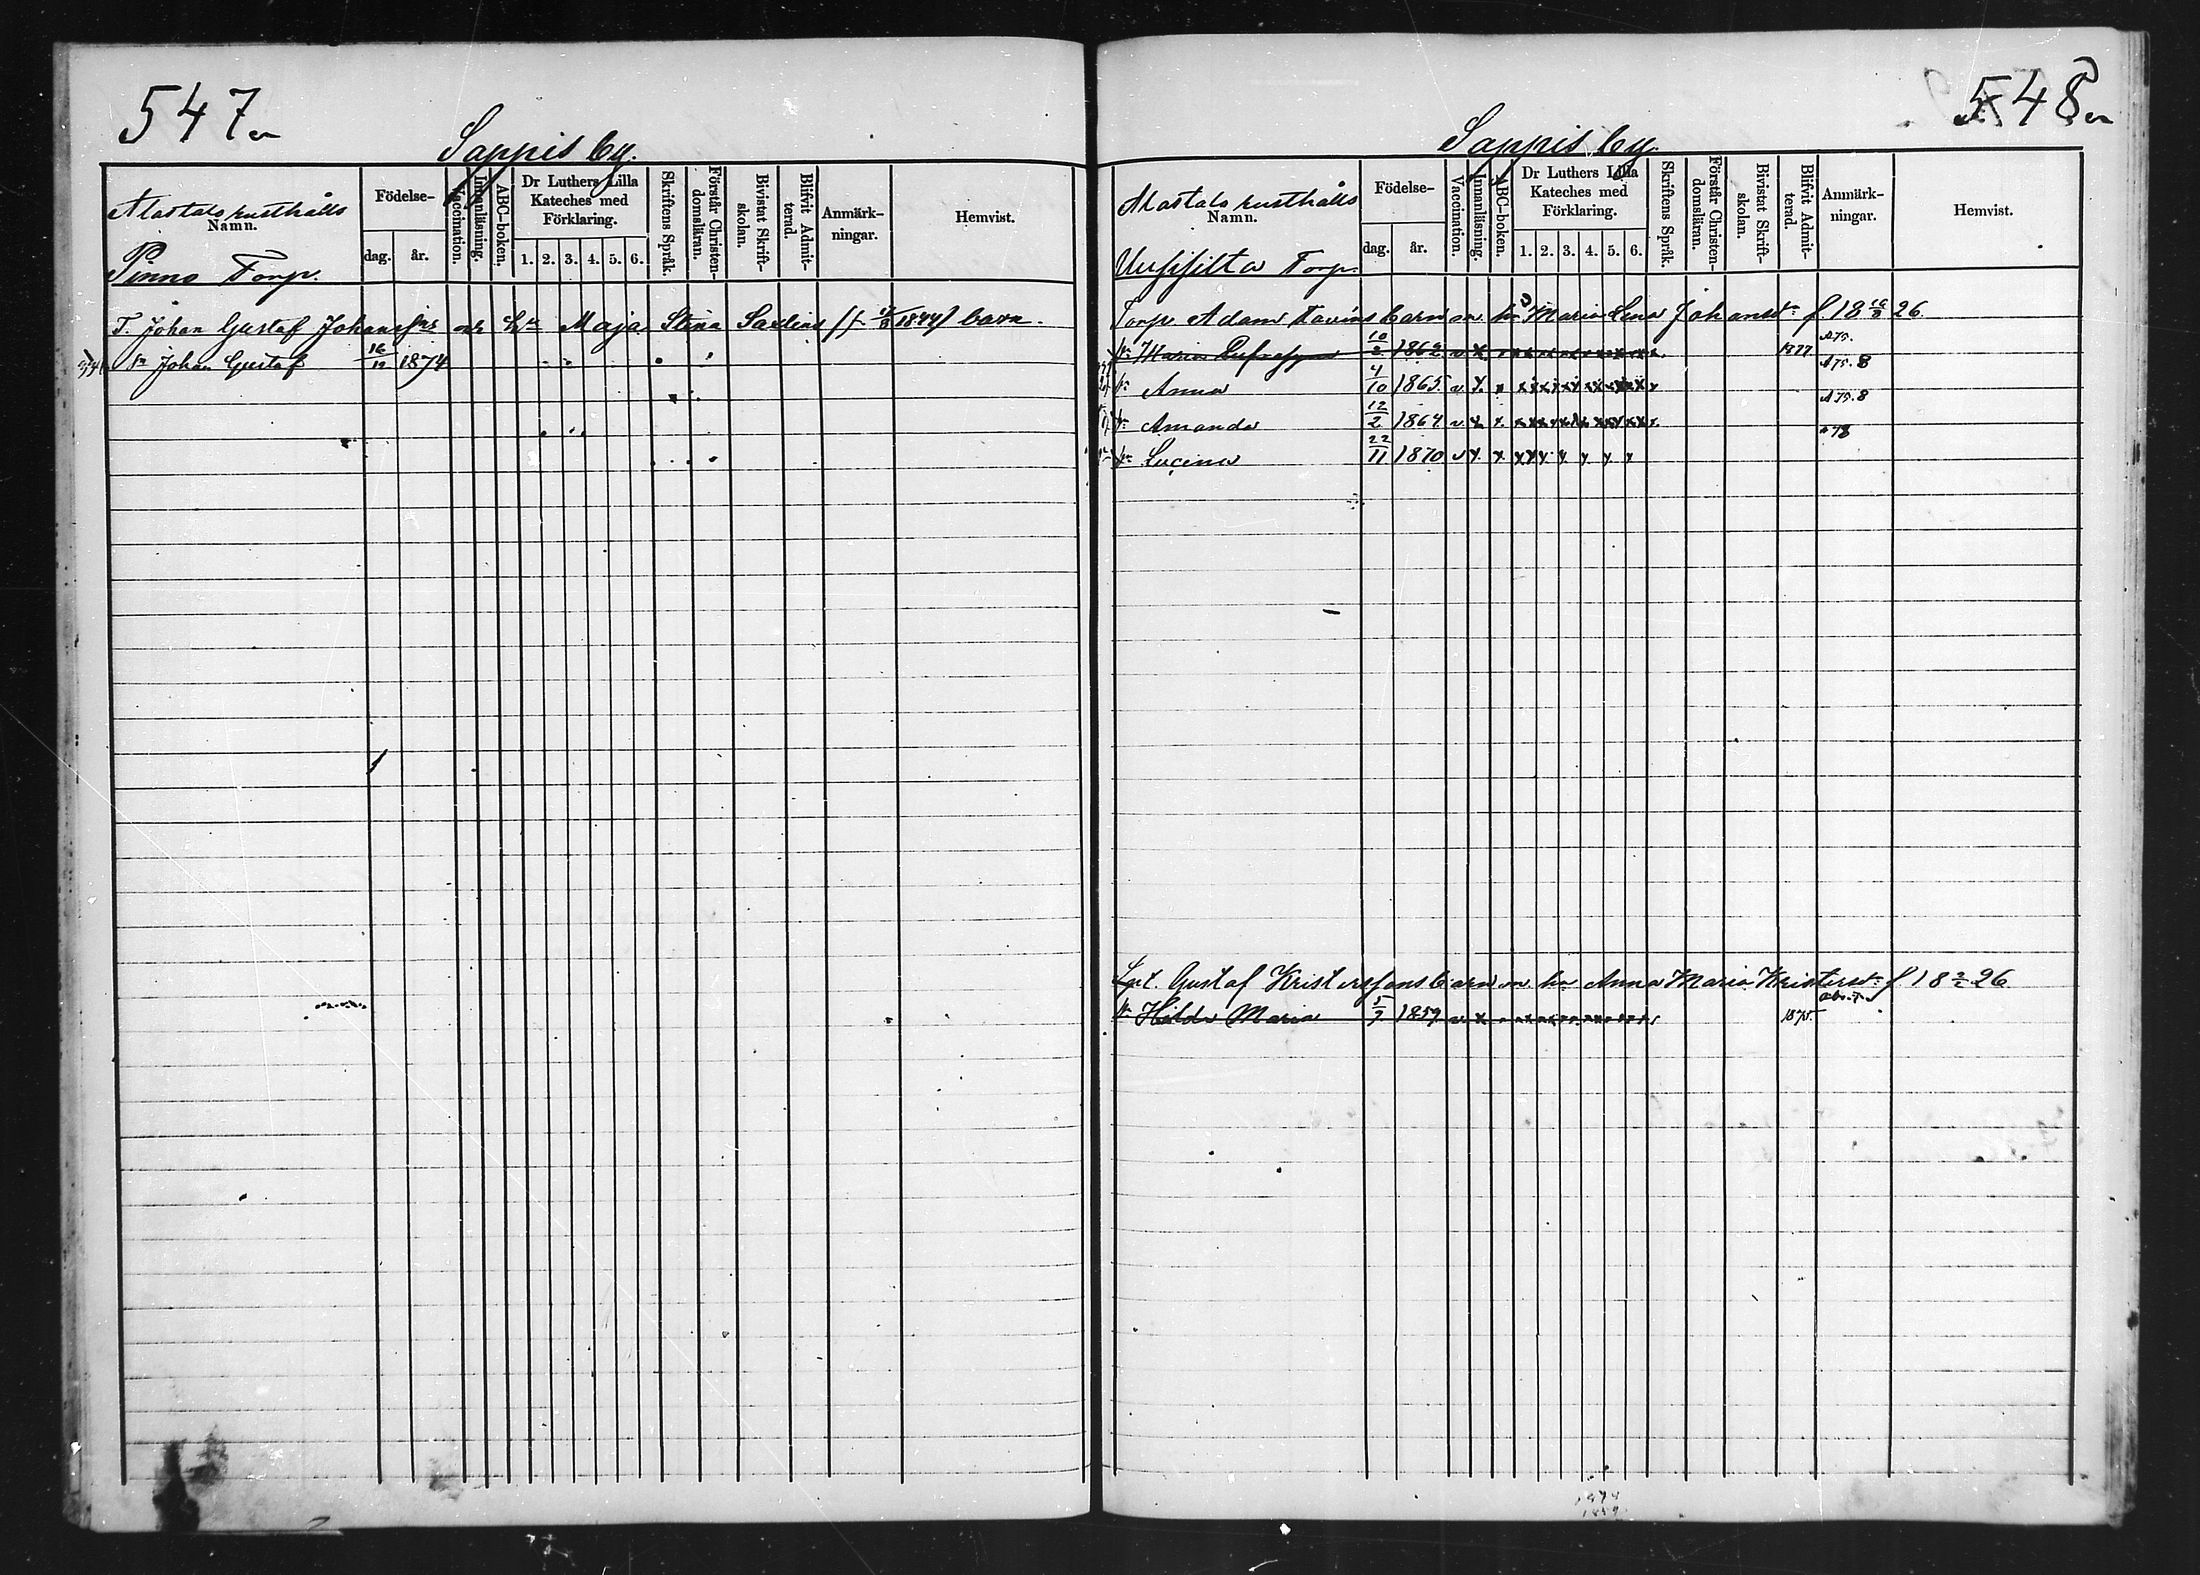 547
Sappis by.
Alastalo rusthålls
Namn.
Pinno Torp.
Födelse-
dag. år.
Vaccination.
Innanläsning.
ABC-boken.
Dr Luthers Lilla
Kateches med
Förklaring.
1. 2. 3. 4. 5. 6.
Skriftens Språk.
Förstår Christen-
domsläran.
Bivistat Skrift-
skolan.
Blifvit Admit-
terad.
Anmärk-
ningar.
Hemvist.
T. Johan Gustaf Johansson och Maja Stina 1844 barn.
Sn Johan Gustaf 16/12 1874
548
Sappis by
Alastalo rusthålls
Namn.
Torp.
Födelse-
dag. år.
Vaccination.
Innanläsning.
ABC-boken.
Dr Luthers Lilla
Kateches med
Förklaring.
1. 2. 3. 4. 5. 6.
Skriftens Språk.
Förstår Christen-
domsläran.
Bivistat Skrift-
skolan.
Blifvit Admit-
terad.
Anmärk-
ningar.
Hemvist.
Torp. Adam barn Maria Lena Johansd f 18 26
Maria 10/2 1862 v x 1877 A75.
Anna 4/10 1865 v x A75.8
Amanda 12/2 1867 v x A75.8
Lucina 22/11 1870 v x x x x x x x x 78
Gustaf Kristersson barn Anna Maria Kristersd f 18 2/2 26
Hilda Maria 5/7 1859 v x 1875